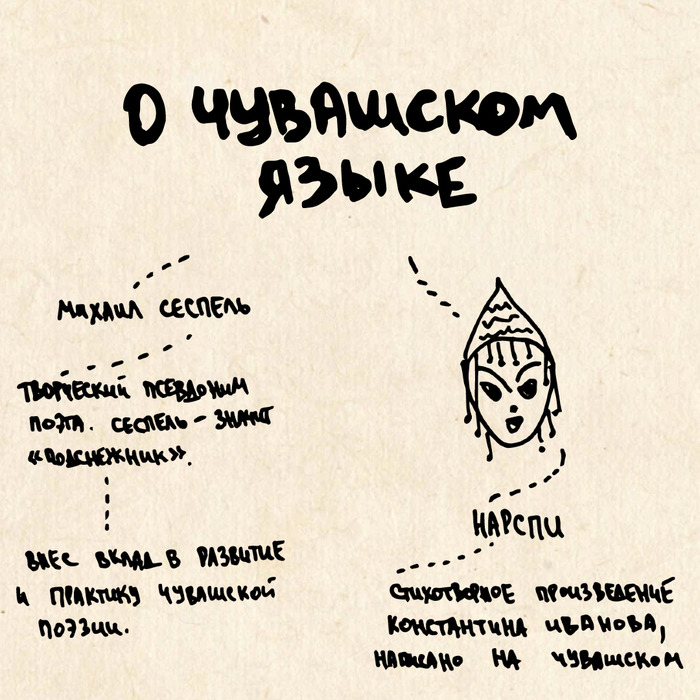 О ЧУВАШСКОМ
ЯЗЫКЕ
МИХАИЛ СЕСПЕЛЬ
ТВОРЧЕСКИЙ ПСЕВДОНИМ
ПОЭТА. СЕСПЕЛЬ - ЗНАЧИТ
«ПОДСНЕЖНИК».
ВНЕС ВКЛАД В РАЗВИТИЕ
И ПРАКТИКУ ЧУВАШСКОЙ
ПОЭЗИИ.
НАРСПИ
СТИХОТВОРНОЕ ПРОИЗВЕДЕНИЕ
КОНСТАНТИНА ИВАНОВА,
НАПИСАНО НА ЧУВАШСКОМ